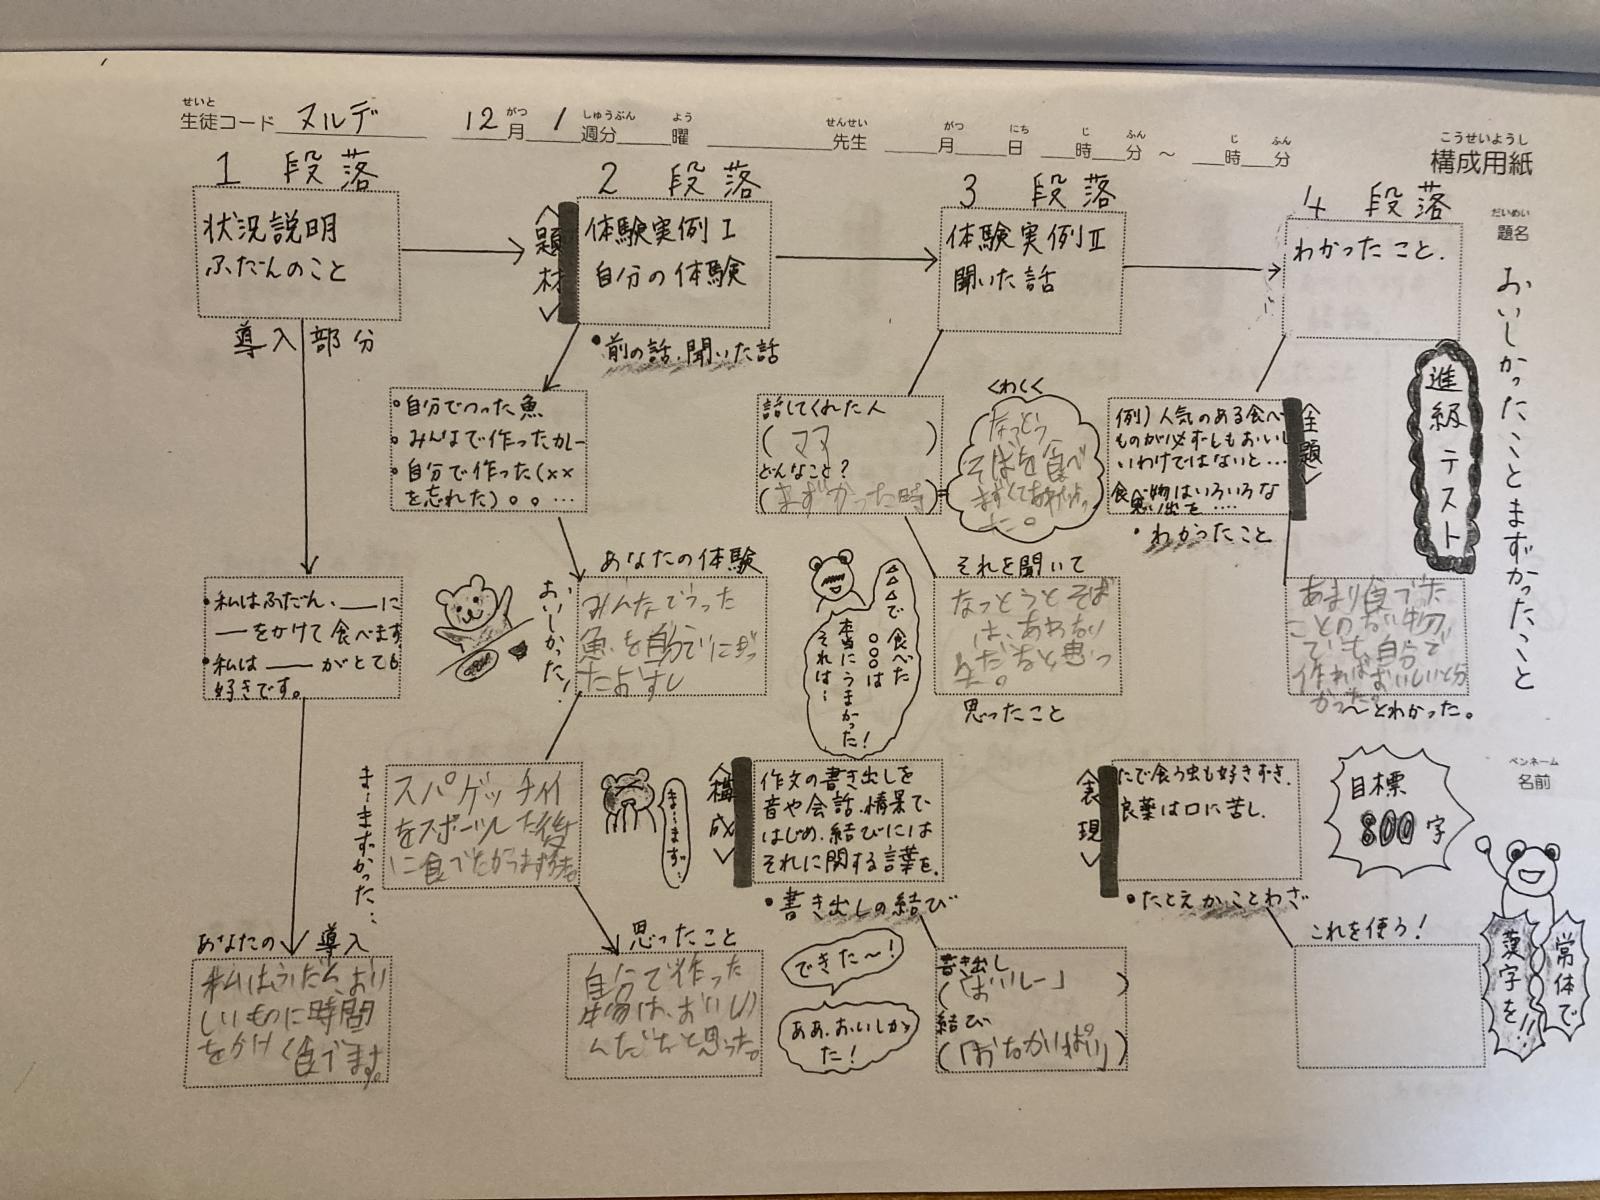 せいと
生徒コード ヌルデ
がつ しゅうぶん よう
12月 1週分 曜
せんせい
先生
がつ にち じ ふん じ ふん
月 日 時 分 ～ 時 分
こうせいようし
構成用紙
だいめい
題名
おいしかったことまずかったこと
進級テスト
1 段落
状況説明
ふだんのこと
導入部分
・私はふだん、＿＿に
―をかけて食べます
・私は ―― がとても
好きです。
あなたの 導入
私はふだん、おい
しいものに時間
をかけ
ます。
2 段落
〈題材〉
体験実例Ⅰ
自分の体験
・前の話、聞いた話
・自分でつった魚
・みんなで作ったカレー
・自分で作った(××
を忘れた)。。…
あなたの体験
おーいしかった!
みんなでつった
魚を自分でにぎっ
たおすし
まーまずかった…
スパゲッティイ
をスポーツした後
に食べたから
まーまず…
思ったこと
自分で作った
物は、おいし
んだなと思った。
3 段落
体験実例Ⅱ
聞いた話
話してくれた人
(ママ)
どんなこと?
(まずかった時)
くわしく
なっとう
そばを食べ
それを聞いて
なっとうとそば
は、あわない
思っ
た。
思ったこと
△△で食べた
○○○は
本当にうまかった!
それは～
〈構成〉
作文の書き出しを
音や会話、情景で
はじめ、結びには
それに関する言葉を。
・書き出しの結び
できた～!
ああ、おいしかっ
た!
書き出し
(「おいしー」)
結び
4 段落
わかったこと.
〈主題〉
例)人気のある食べ
ものが必ずしもおいし
いわけではないと…
食べ物はいろいろな
思い出を….
・わかったこと
あまり食べた
ことのない物
でも、自分で
作ればおいしいと分
かった
～とわかった。
〈表現〉
たで食う虫も好きずき.
良薬は口に苦し.
・たとえかことわざ
これを使う!
目標
800字
ペンネーム
名前
常体で
漢字を!!